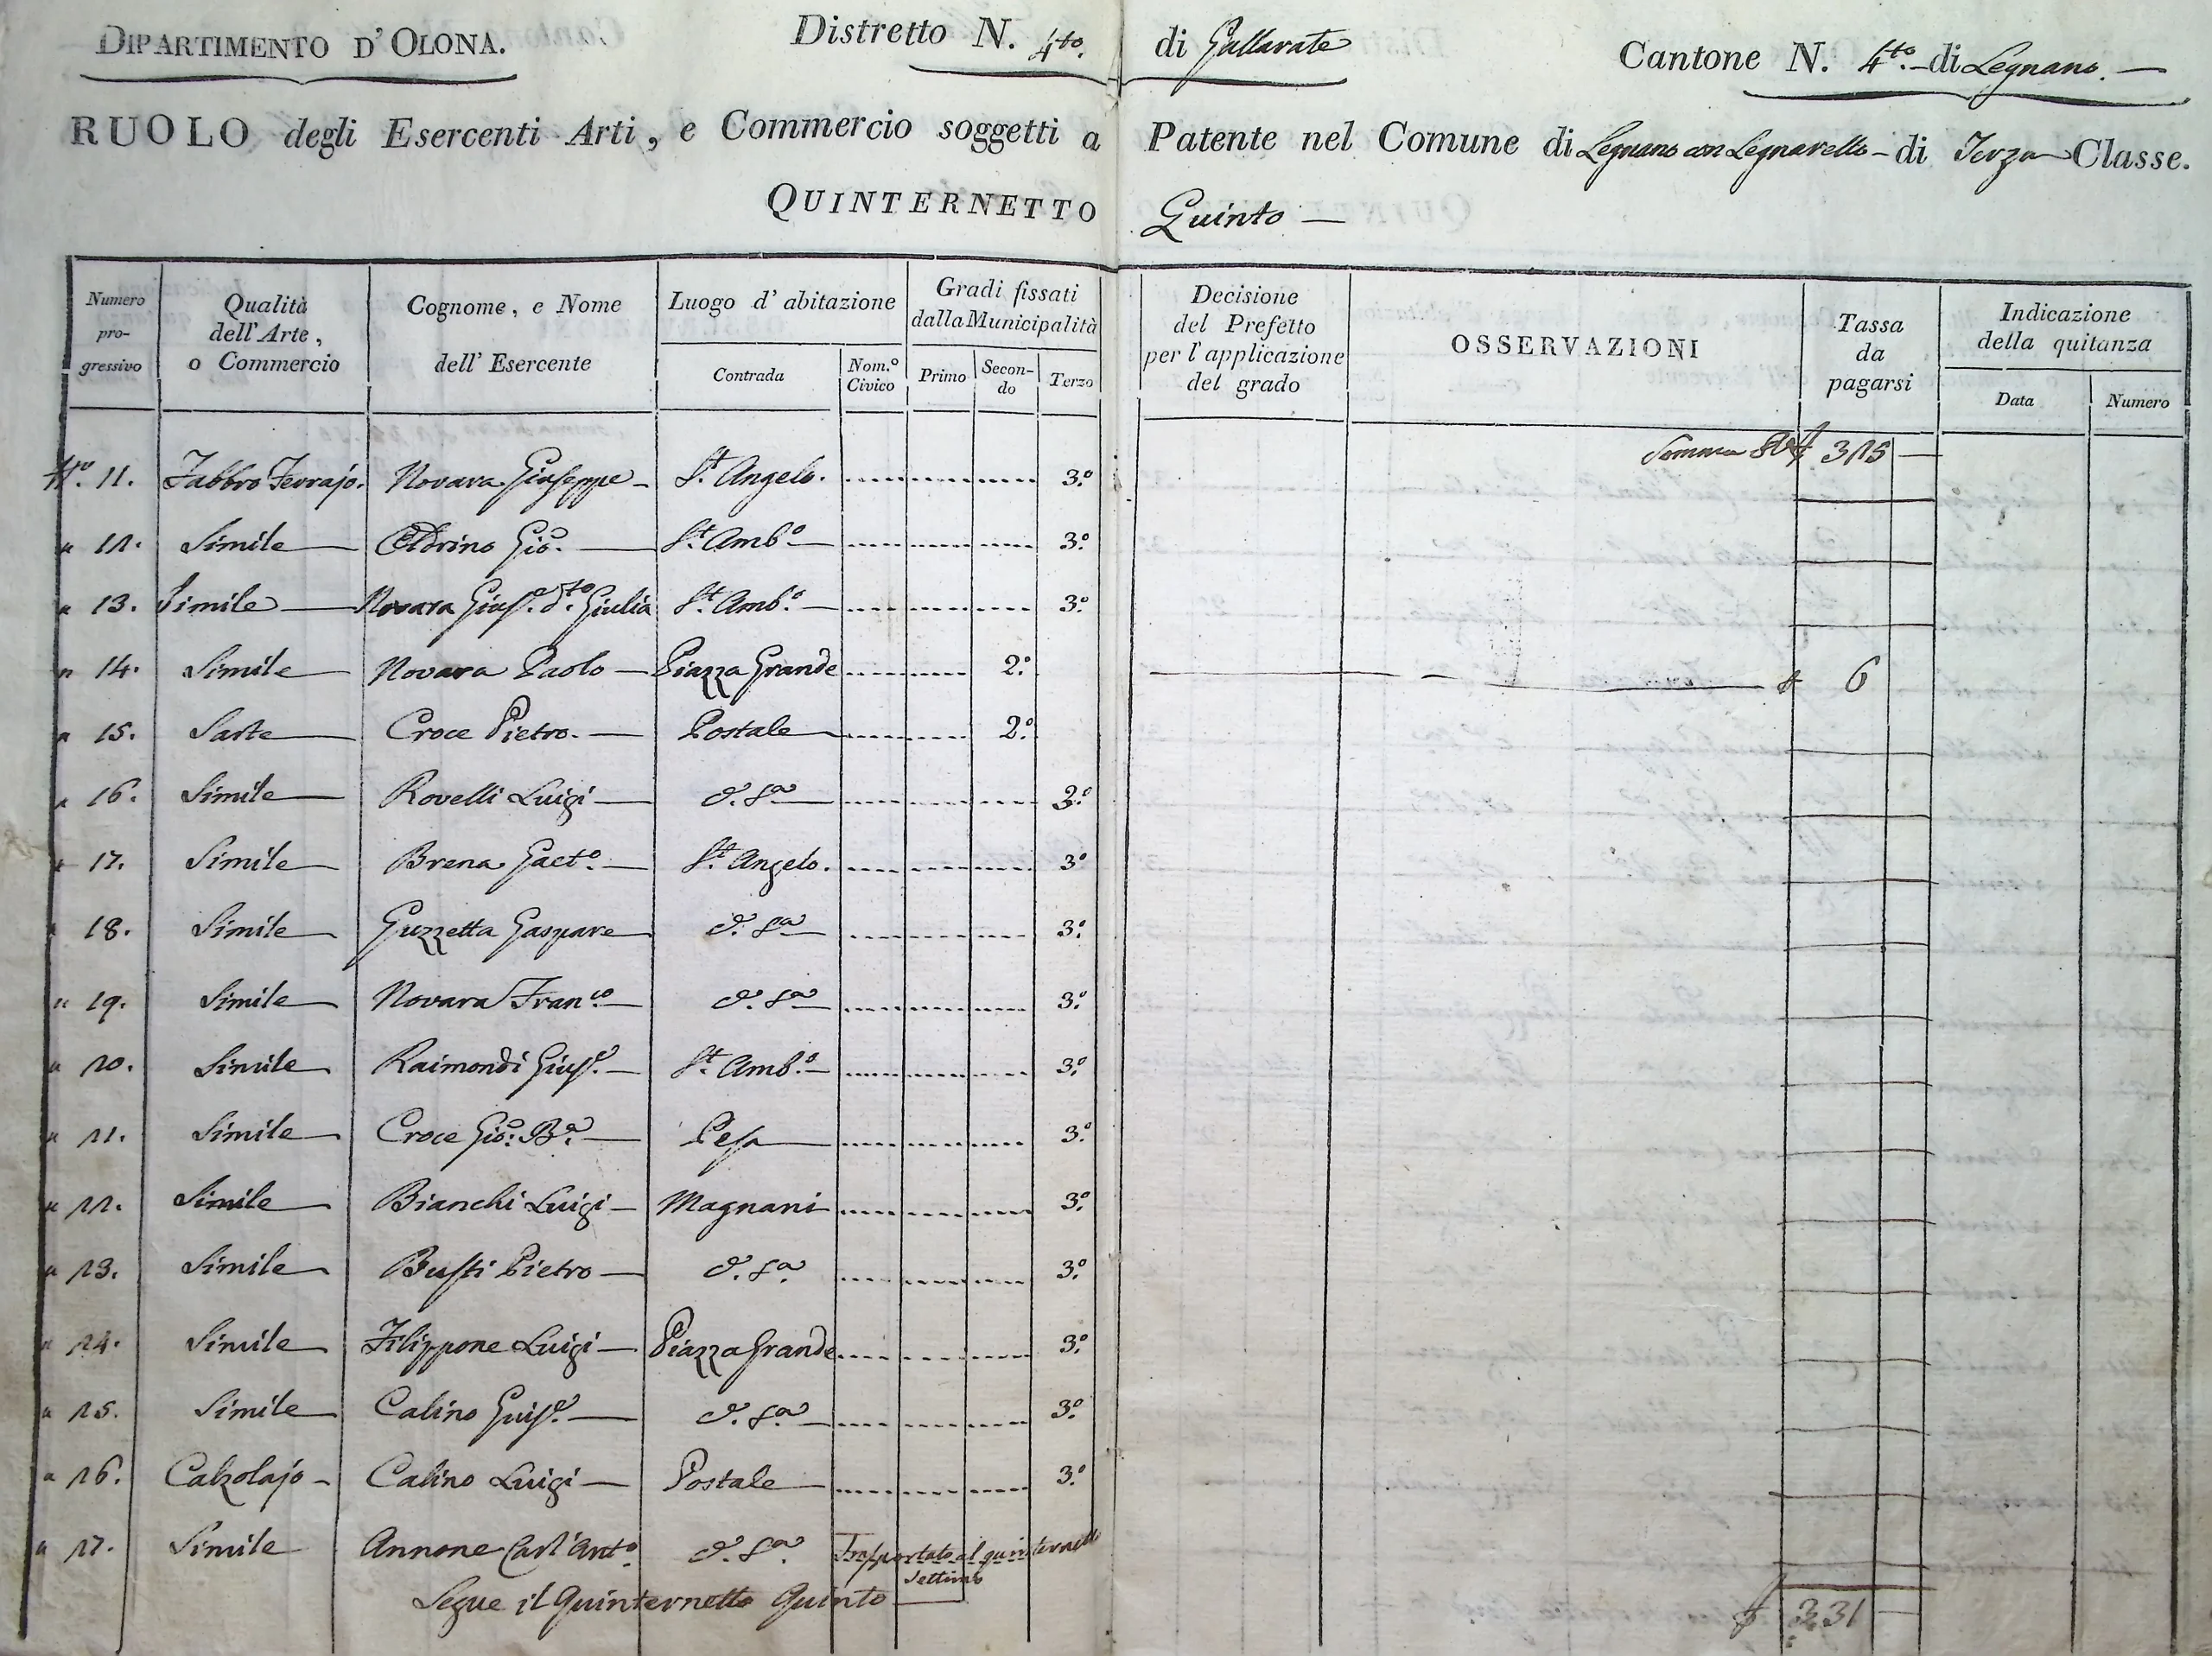 DIPARTIMENTO D' OLONA. Distretto N. 4to. di Gallarate Cantone N. 4to. di Legnano.
RUOLO degli Esercenti Arti, e Commercio soggetti a Patente nel Comune di Legnano con Legnarello - di Terza Classe.
QUINTERNETTO Quinto
Numero progressivo Qualità dell' Arte, o Commercio Cognome, e Nome dell' Esercente Luogo d' abitazione Gradi fissati dalla Municipalità Decisione del Prefetto per l' applicazione del grado OSSERVAZIONI Tassa da pagarsi Indicazione della quitanza
Contrada Nom.º Civico Primo Secondo Terzo Data Numero
Somma 325
No. 11. Fabbro Ferrajo. Novara Giuseppe St. Angelo. 3.º
" 12. Simile Gio. St. Amb.º 3.º
" 13. Simile Novara Gius.e d.to Giulia St. Amb.º 3.º
" 14. Simile Novara Paolo Piazza Grande 2.º 6
" 15. Sarte Croce Pietro. Postale 2.º
" 16. Simile Rovelli Luigi d. Sa 3.º
" 17. Simile Brena Gaet.º St. Angelo. 3.º
" 18. Simile Guzzetta Gaspare d. Sa 3.º
" 19. Simile Novara Fran.co d. Sa 3.º
" 20. Simile Raimondi Gius.e St. Amb.º 3.º
" 21. Simile Croce Gio: Ba. Pesa 3.º
" 22. Simile Bianchi Luigi Magnani 3.º
" 23. Simile Busti Pietro d. Sa. 3.º
" 24. Simile Filippone Luigi Piazza Grande 3.º
" 25. Simile Calino Guis.e d. Sa 3.º
" 26. Calzolajo Calino Luigi Postale 3.º
" 27. Simile Annone Carl' Ant.o d. Sa. Trasportato al quinternetto settimo
Segue il Quinternetto Quinto 331